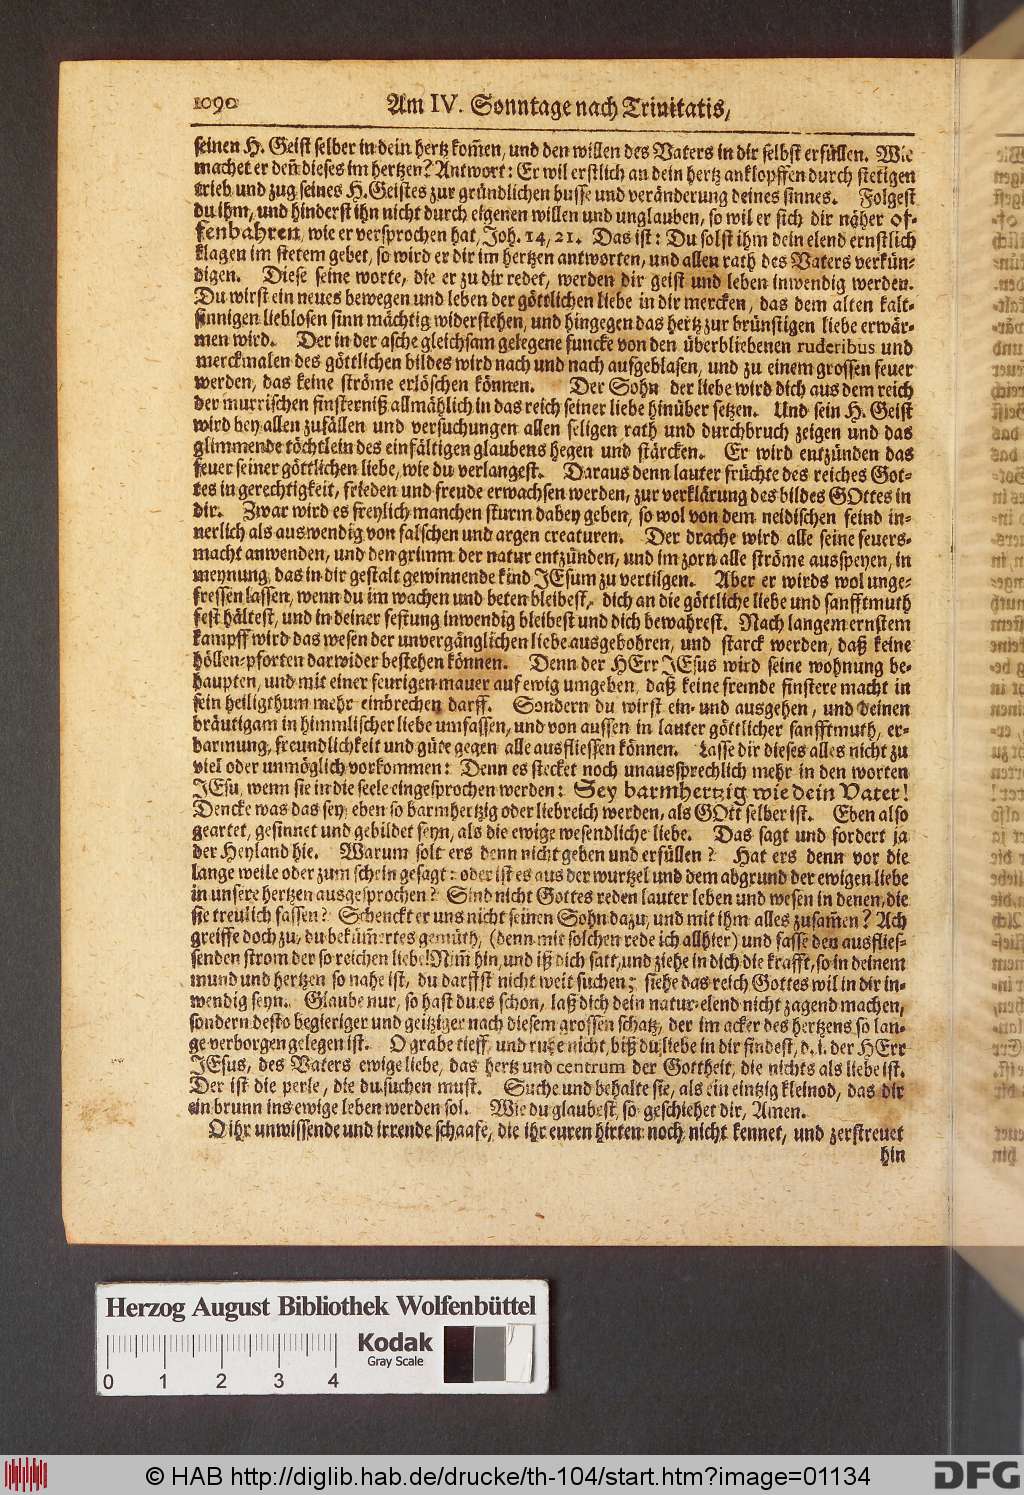 1090 Am IV. Sonntage nach Trinitatis,
seinen H. Geist selber in dein hertz kom̃en, und den willen des Vaters in dir selbst erfüllen. Wie
machet er den̄ dieses im hertzen? Antwort: Er wil erstlich an dein hertz anklopffen durch stetigen
trieb und zug seines H. Geistes zur gründlichen busse und veränderung deines sinnes. Folgest
du ihm, und hinderst ihn nicht durch eigenen willen und unglauben, so wil er sich dir näher of-
fenbahren, wie er versprochen hat, Joh. 14, 21. Das ist: Du solst ihm dein elend ernstlich
klagen im stetem gebet, so wird er dir im hertzen antworten, und allen rath des Vaters verkün-
digen. Diese seine worte, die er zu dir redet, werden dir geist und leben inwendig werden.
Du wirst ein neues bewegen und leben der göttlichen liebe in dir mercken, das dem alten kalt-
sinnigen lieblosen sinn mächtig widerstehen, und hingegen das hertz zur brünstigen liebe erwär-
men wird. Der in der asche gleichsam gelegene funcke von den überbliebenen ruderibus und
merckmalen des göttlichen bildes wird nach und nach aufgeblasen, und zu einem grossen feuer
werden, das keine ströme erlöschen können. Der Sohn der liebe wird dich aus dem reich
der murrischen finsterniß allmählich in das reich seiner liebe hinüber setzen. Und sein H. Geist
wird bey allen zufällen und versuchungen allen seligen rath und durchbruch zeigen und das
glimmende töchtlein des einfältigen glaubens hegen und stärcken. Er wird entzünden das
feuer seiner göttlichen liebe, wie du verlangest. Daraus denn lauter früchte des reiches Got-
tes in gerechtigkeit, frieden und freude erwachsen werden, zur verklärung des bildes GOttes in
dir. Zwar wird es freylich manchen sturm dabey geben, so wol von dem neidischen feind in-
nerlich als auswendig von falschen und argen creaturen. Der drache wird alle seine feuers-
macht anwenden, und den grimm der natur entzünden, und im zorn alle ströme ausspeyen, in
meynung, das in dir gestalt gewinnende kind JEsum zu vertilgen. Aber er wirds wol unge-
fressen lassen, wenn du im wachen und beten bleibest, dich an die göttliche liebe und sanfftmuth
fest hältest, und in deiner festung inwendig bleibest und dich bewahrest. Nach langem ernstem
kampff wird das wesen der unvergänglichen liebe ausgebohren, und starck werden, daß keine
höllen-pforten darwider bestehen können. Denn der HErr JEsus wird seine wohnung be-
haupten, und mit einer feurigen mauer auf ewig umgeben, daß keine fremde finstere macht in
sein heiligthum mehr einbrechen darff. Sondern du wirst ein- und ausgehen, und deinen
bräutigam in himmlischer liebe umfassen, und von aussen in lauter göttlicher sanfftmuth, er-
barmung, freundlichkeit und güte gegen alle ausfliessen können. Lasse dir dieses alles nicht zu
viel oder unmöglich vorkommen: Denn es stecket noch unaussprechlich mehr in den worten
JEsu, wenn sie in die seele eingesprochen werden: Sey barmhertzig wie dein Vater!
Dencke was das sey, eben so barmhertzig oder liebreich werden, als GOtt selber ist. Eben also
geartet, gesinnet und gebildet seyn, als die ewige wesendliche liebe. Das sagt und fordert ja
der Heyland hie. Warum solt ers denn nicht geben und erfüllen? Hat ers denn vor die
lange weile oder zum schein gesagt: oder ist es aus der wurtzel und dem abgrund der ewigen liebe
in unsere hertzen ausgesprochen? Sind nicht Gottes reden lauter leben und wesen in denen, die
sie treulich fassen? Schenckt er uns nicht seinen Sohn dazu, und mit ihm alles zusam̃en? Ach
greiffe doch zu, du beküm̃ertes gemüth, (denn mit solchen rede ich allhier) und fasse den ausflies-
senden strom der so reichen liebe! Nim̃ hin, und iß dich satt, und ziehe in dich die krafft, so in deinem
mund und hertzen so nahe ist, du darffst nicht weit suchen; siehe das reich Gottes wil in dir in-
wendig seyn. Glaube nur, so hast du es schon, laß dich dein natur-elend nicht zagend machen,
sondern desto begieriger und geitziger nach diesem grossen schatz, der im acker des hertzens so lan-
ge verborgen gelegen ist. O grabe tieff, und ruhe nicht, biß du liebe in dir findest, d. i. der HErr
JEsus, des Vaters ewige liebe, das hertz und centrum der Gottheit, die nichts als liebe ist.
Der ist die perle, die du suchen must. Suche und behalte sie, als ein eintzig kleinod, das dir
ein brunn ins ewige leben werden sol. Wie du glaubest, so geschiehet dir, Amen.
O ihr unwissende und irrende schaafe, die ihr euren hirten noch nicht kennet, und zerstreuet
hin
Herzog August Bibliothek Wolfenbüttel
Kodak
Gray Scale
0 1 2 3 4
© HAB http://diglib.hab.de/drucke/th-104/start.htm?image=01134
DFG